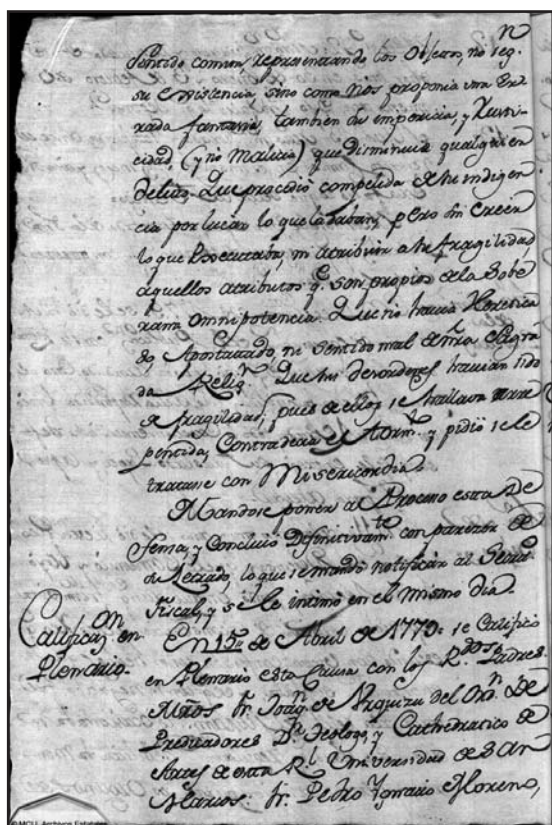 sentido comun representando los Objetos, no seg.
su existencia, sino como nos proponia una Er-
rada fantasia, tambien de impericia, y Rusti-
cidad, (y no Malicia) que disminuia qualquier
delito. Que procedió compelida de su indigen
cia por lucrar lo que la daban, pero sin creer
lo que executaba, ni atribuir a la fragilidad,
aquellos atributos q.e son propios de la Sobe
rana Omnipotencia. Que no havia Hereticа
do, Apostatado, ni sentido mal de nra. Sagra
da Relig.n Que sus desordenes havian sido
de fragilidad, pues de ellos se hallava arre
pentida, Contradecia el Torm.to y pidió se le
tratase con Misericordia.
Mandose poner al Proceso esta De
fensa, y Concluió Definitivam.te con parezer de
su Letrado, lo que se mandó notificar al Secret.
Fiscal, y se le intimó en el mismo dia.
Califica.on en
Plenario.
En 15 de Abril de 1779. se Calificó
en Plenario esta Causa con los R.dos Padres
Mtros Fr. Joaq.n de Urquizu del Ord.n De
Predicadores D.r Teologo, y Cathedratico de
Artes de esta R.l Universidad de San
Marcos: Fr. Pedro Ygnacio Moreno,
©MCU. Archivos Estatales